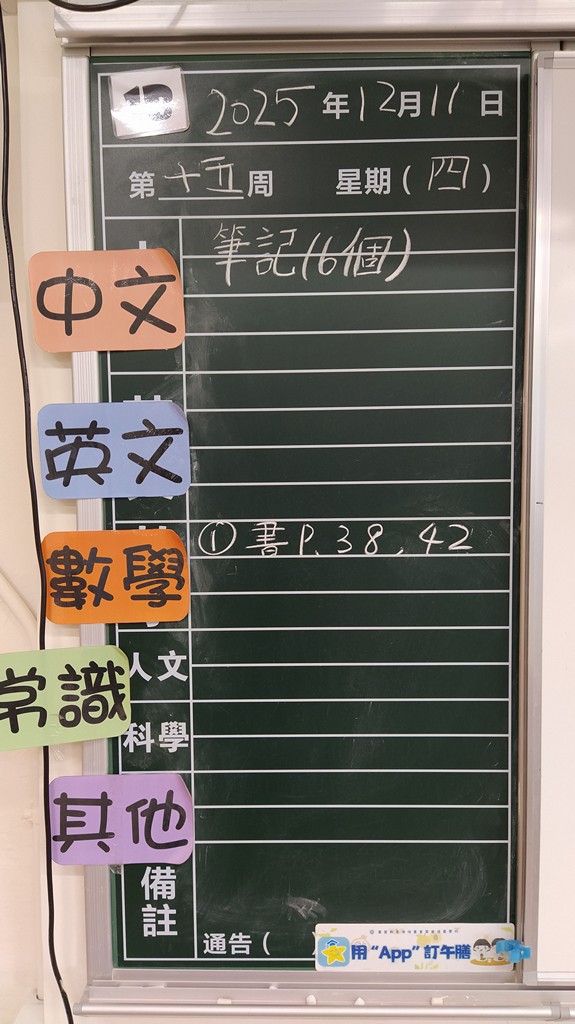 2025年12月11日
第十五周 星期(四)
筆記(6個)
中文
英文
① 書P.38,42
數學
人文
常識
科學
其他
備註
通告(
用“App”訂午膳